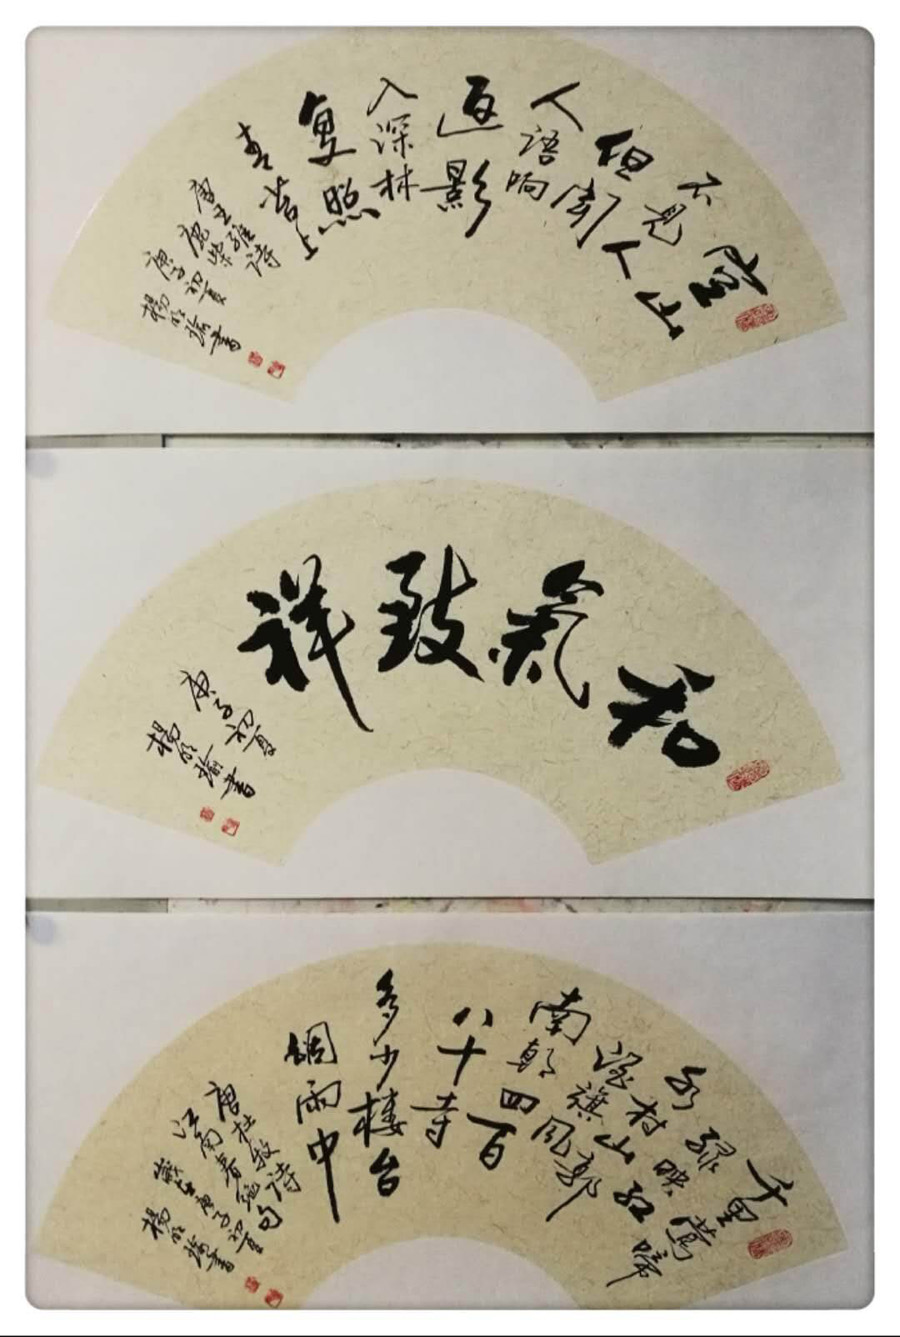 空山
不见人
但闻
人语响
返影
入深林
复照
青苔上
唐王维诗
鹿柴
庚子初夏
楊明瑜書
和氣致祥
庚子初夏
楊明瑜書
千里莺啼
绿映红
水村山郭
酒旗风
南朝四百
八十寺
多少楼台
烟雨中
唐杜牧诗
江南春绝句
歲在庚子初夏
楊明瑜書